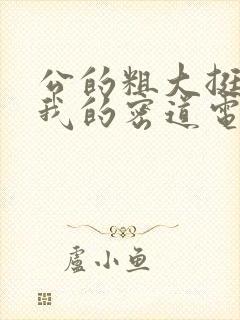 公的粗大挺
我的密道電
盧小鱼